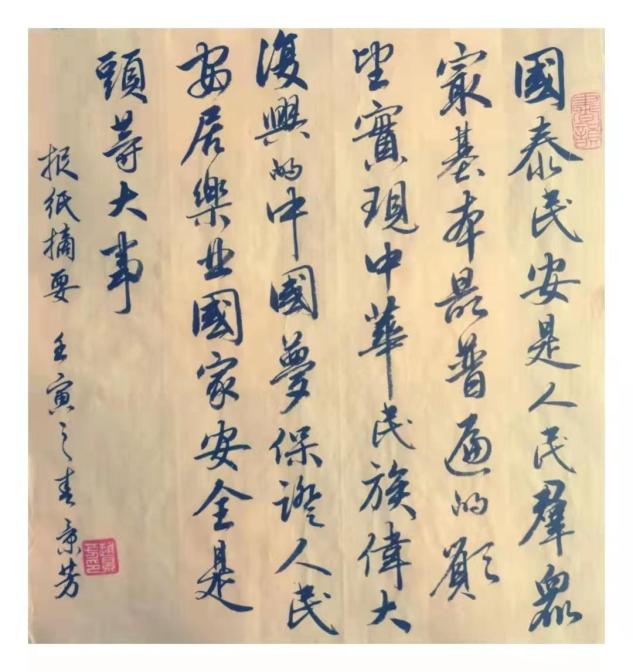 國泰民安是人民羣眾
最基本最普遍的願
望實現中華民族偉大
復興的中國夢保證人民
安居樂业國家安全是
頭等大事
报纸摘要 壬寅之春景芳